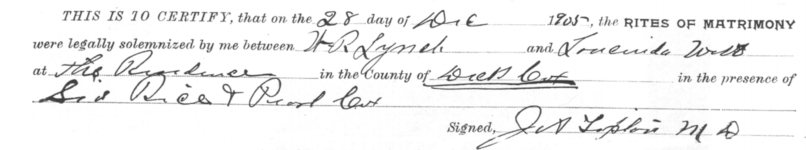 THIS IS TO CERTIFY, that on the 28 day of Dec 1905, the RITES OF MATRIMONY
were legally solemnized by me between W R Lynch and Loucinda Webb
at the Residence in the County of in the presence of
Rice & Pearl Cox
Signed, J A Lipton M D